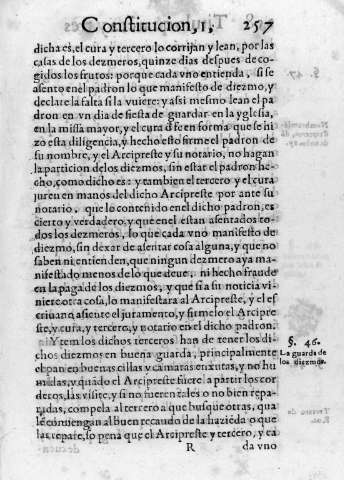 Constitucion, 1, 257
dicha es, el cura y tercero lo corrijan y lean, por las
casas de los dezmeros, quinze dias despues de co-
gidos los frutos: porque cada vno entienda, si se
asento en el padron lo que manifesto de diezmo, y
declare la falta si la vuiere: y asi mesmo lean el pa
dron en vn dia de fiesta de guardar en la yglesia,
en la missa mayor, y el cura dè fe en forma que se hi
zo esta diligencia, y hecho esto firme el padron de
su nombre, y el Arcipreste y su notario, no hagan
la particion de los diezmos, sin estar el padron he-
cho, como dicho es: y tambien el tercero y el cura
juren en manos del dicho Arcipreste por ante su
notario, que lo contenido en el dicho padron, es
cierto y verdadero, y que en el estan asentados to-
dos los dezmeros, lo que cada vno manifesto de
diezmo, sin dexar de asentar cosa alguna, y que no
saben ni entienden, que ningun dezmero aya ma-
nifestado menos de lo que deue, ni hecho fraude
en la paga de los diezmos, y que si a su noticia vi-
niere otra cosa, lo manifestara al Arcipreste, y el es
criuano asiente el juramento, y firmelo el Arcipre
ste, y cura, y tercero, y notario en el dicho padron.
Y tem los dichos terceros han de tener los di-
chos diezmos en buena guarda, principalmente
el pan en buenas cillas y camaras enxutas, y no hu
midas, y quãdo el Arcipreste fuere a partir los cor
deros, las visite, y si no fueren tales o no bien repa-
radas, compela al tercero a que busque otras, qua
les conuengan al buen recaudo de la haziẽda o que
las repare, so pena que el Arcipreste y tercero, y ca
§. 46.
La guarda de
los diezmos.
R da vno